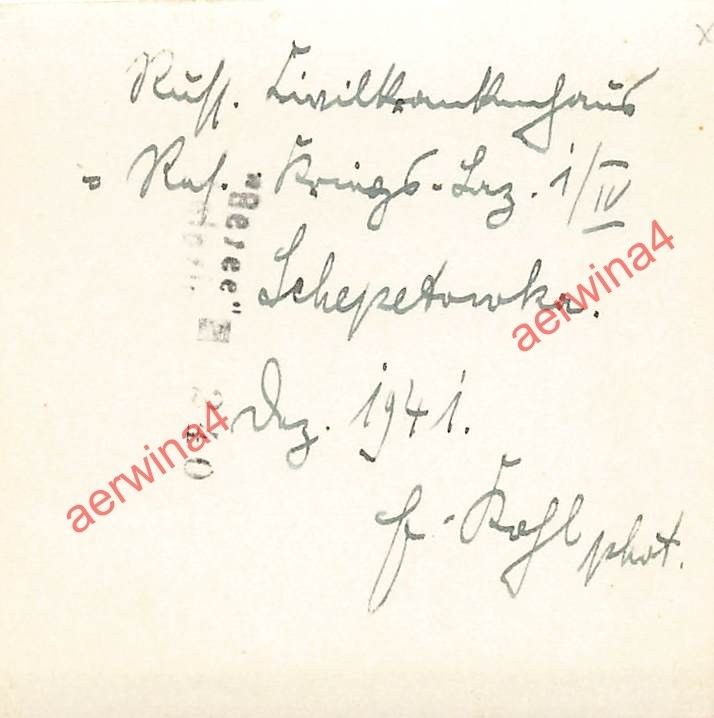 Russ. Zivilkrankenhaus
= Res. Kriegs-Laz. 1/IV
Schepetowka.
Dez. 1941.
Kohl phot.
"Beree"
aerwina4
aerwina4